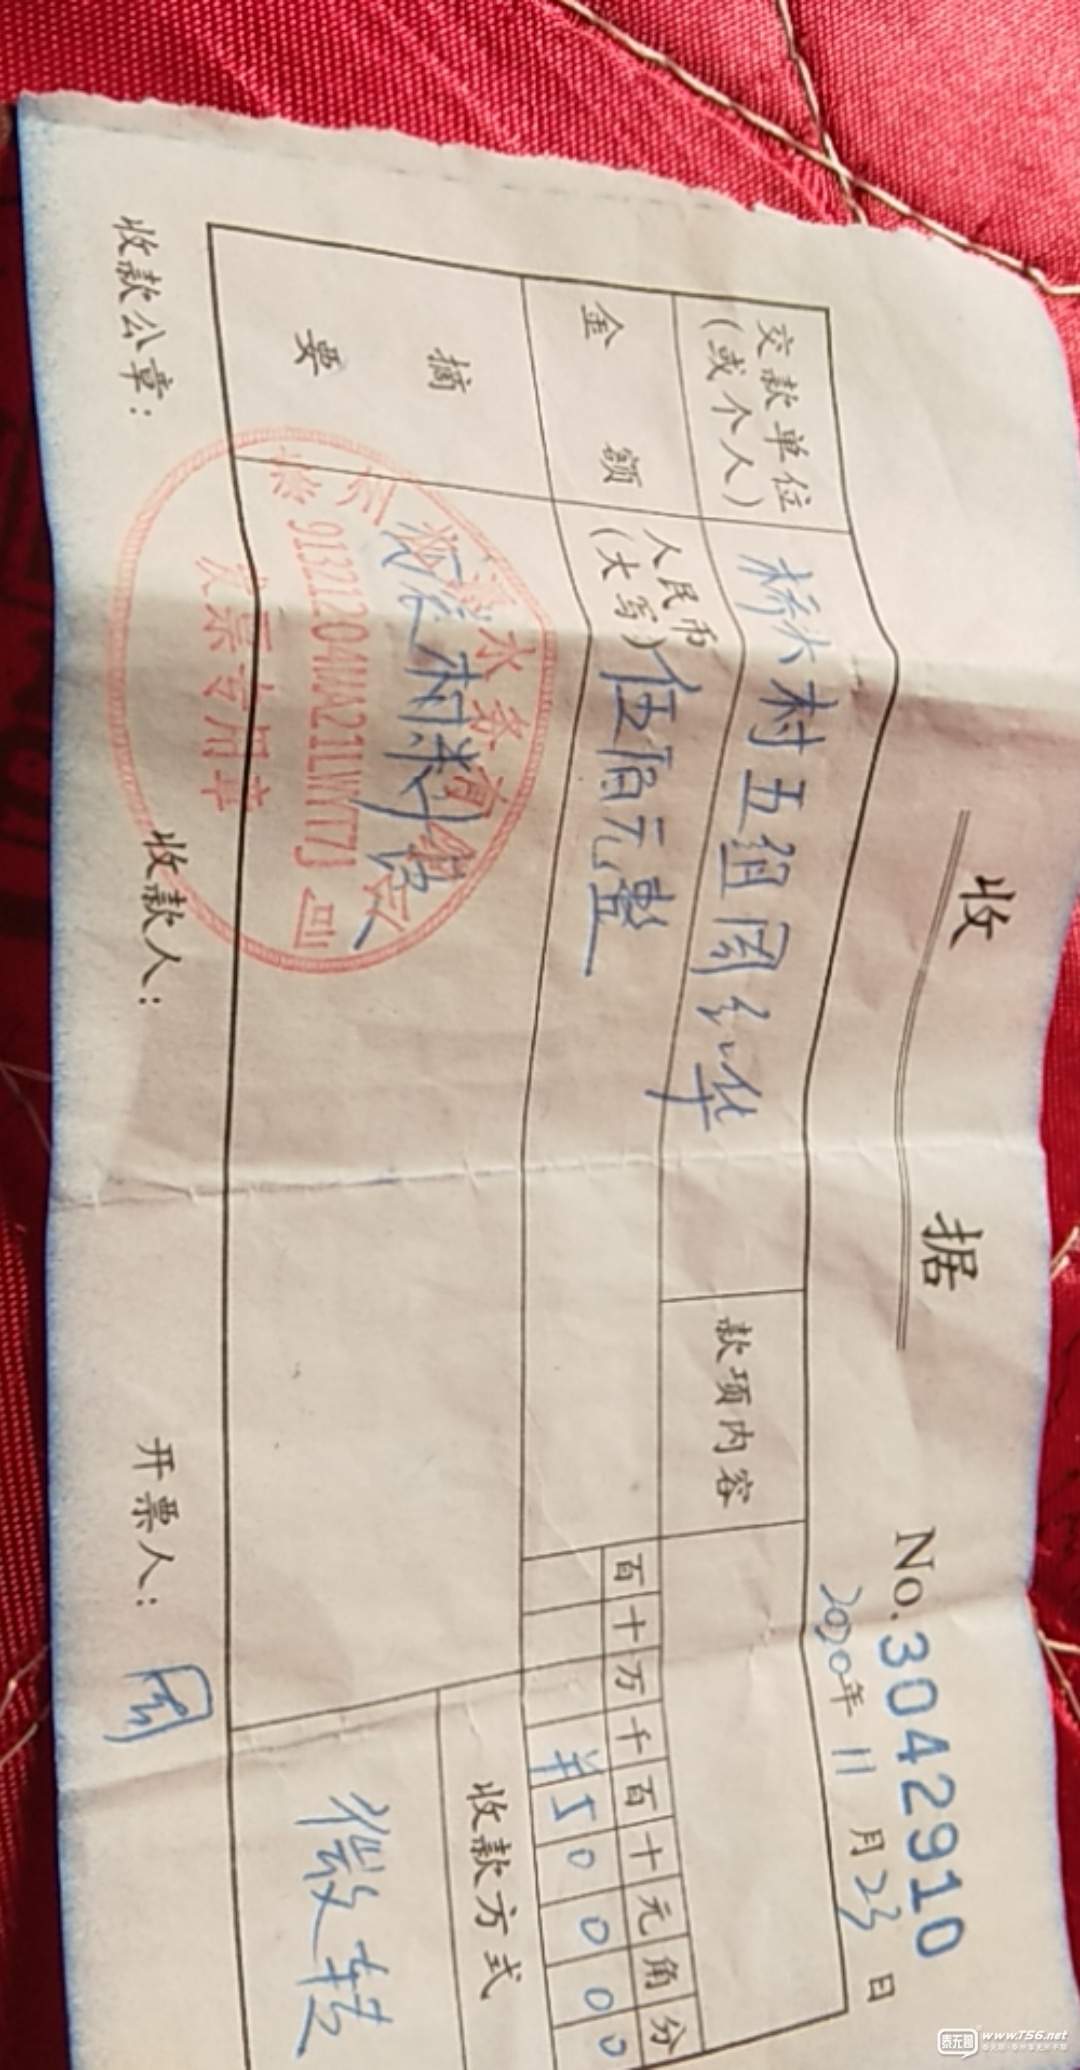 收 据
No.30429 10
2020年 11 月 23 日
交款单位
(或个人)
桥大村五组周红华
款项内容
金 额
人民币
(大写)
伍佰元整
百 十 万 千 百 十 元 角 分
¥ 5 0 0 0 0
摘
要
材料费
水务有
91321204MA21LWYT7J
发票专用章
收款方式
微转
收款公章：
收款人：
开票人：
周
泰无聊
www.T56.net